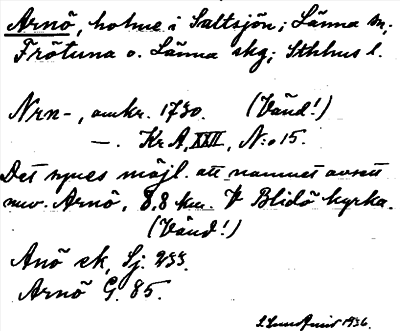 Arnö, holme i Saltsjön; Länna sn;
Frötuna o. Länna skg; Sthlms l.
Nrn-, omkr. 1730. (Vänd!)
—. Kr A, XXII, N:o 15.
Det synes möjl. att namnet avsett
nuv. Arnö, 8,8 km. V Blidö kyrka.
(Vänd!)
Anö ek, Sj. 233.
Arnö G. 85.
1936.